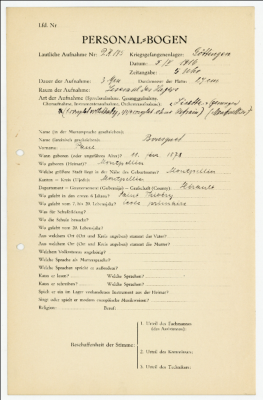 Lfd. Nr
PERSONAL-BOGEN
Lautliche Aufnahme Nr
Kriegsgefangenenlager: Göttingen
Datum: 1916
Zeitangabe: 5 Uhr
Dauer der Aufnahme: 3 Min
Durchmesser der Platte: 27 cm
Raum der Aufnahme: Lesesaal des Lagers
Art der Aufnahme (Sprechaufnahme, Gesangaufnahme,
Choraufnahme, Instrumentenaufnahme, Orchesteraufnahme):
Name (in der Muttersprache geschrieben):
Name (lateinisch geschrieben): Bousquet
Vorname: Paul
Wann geboren (oder ungefähres Alter)?
Wo geboren (Heimat)? Montpellier
Welche größere Stadt liegt in der Nähe des Geburtsortes? Montpellier
Kanton — Kreis (Ujedz): Montpellier
Departement — Gouvernement (Gubernija) — Grafschaft (County): Hérault
Wo gelebt in den ersten 6 Jahren?
Wo gelebt vom 7. bis 20. Lebensjahr?
Was für Schulbildung?
Wo die Schule besucht?
Wo gelebt vom 20. Lebensjahr?
Aus welchem Ort (Ort und Kreis angeben) stammt der Vater?
Aus welchem Ort (Ort und Kreis angeben) stammt die Mutter?
Welchem Volksstamm angehörig?
Welche Sprache als Muttersprache?
Welche Sprachen spricht er außerdem?
Kann er lesen? Welche Sprachen?
Kann er schreiben? Welche Sprachen?
Spielt er ein im Lager vorhandenes Instrument aus der Heimat?
Singt oder spielt er modern europäische Musikweisen?
Religion: Beruf:
Beschaffenheit der Stimme:
1. Urteil des Fachmannes
(des Assistenten):
2. Urteil des Kommissars:
3. Urteil des Technikers: